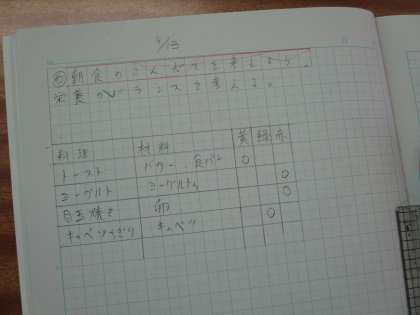 5/13
め 朝食のこんだてを考えよう。
栄養のバランスを考える。
料理 材料 黄 緑 赤
トースト バター 食パン ○
ヨーグルト ヨーグルト ○
目玉焼き 卵 ○
キャベツ キャベツ ○